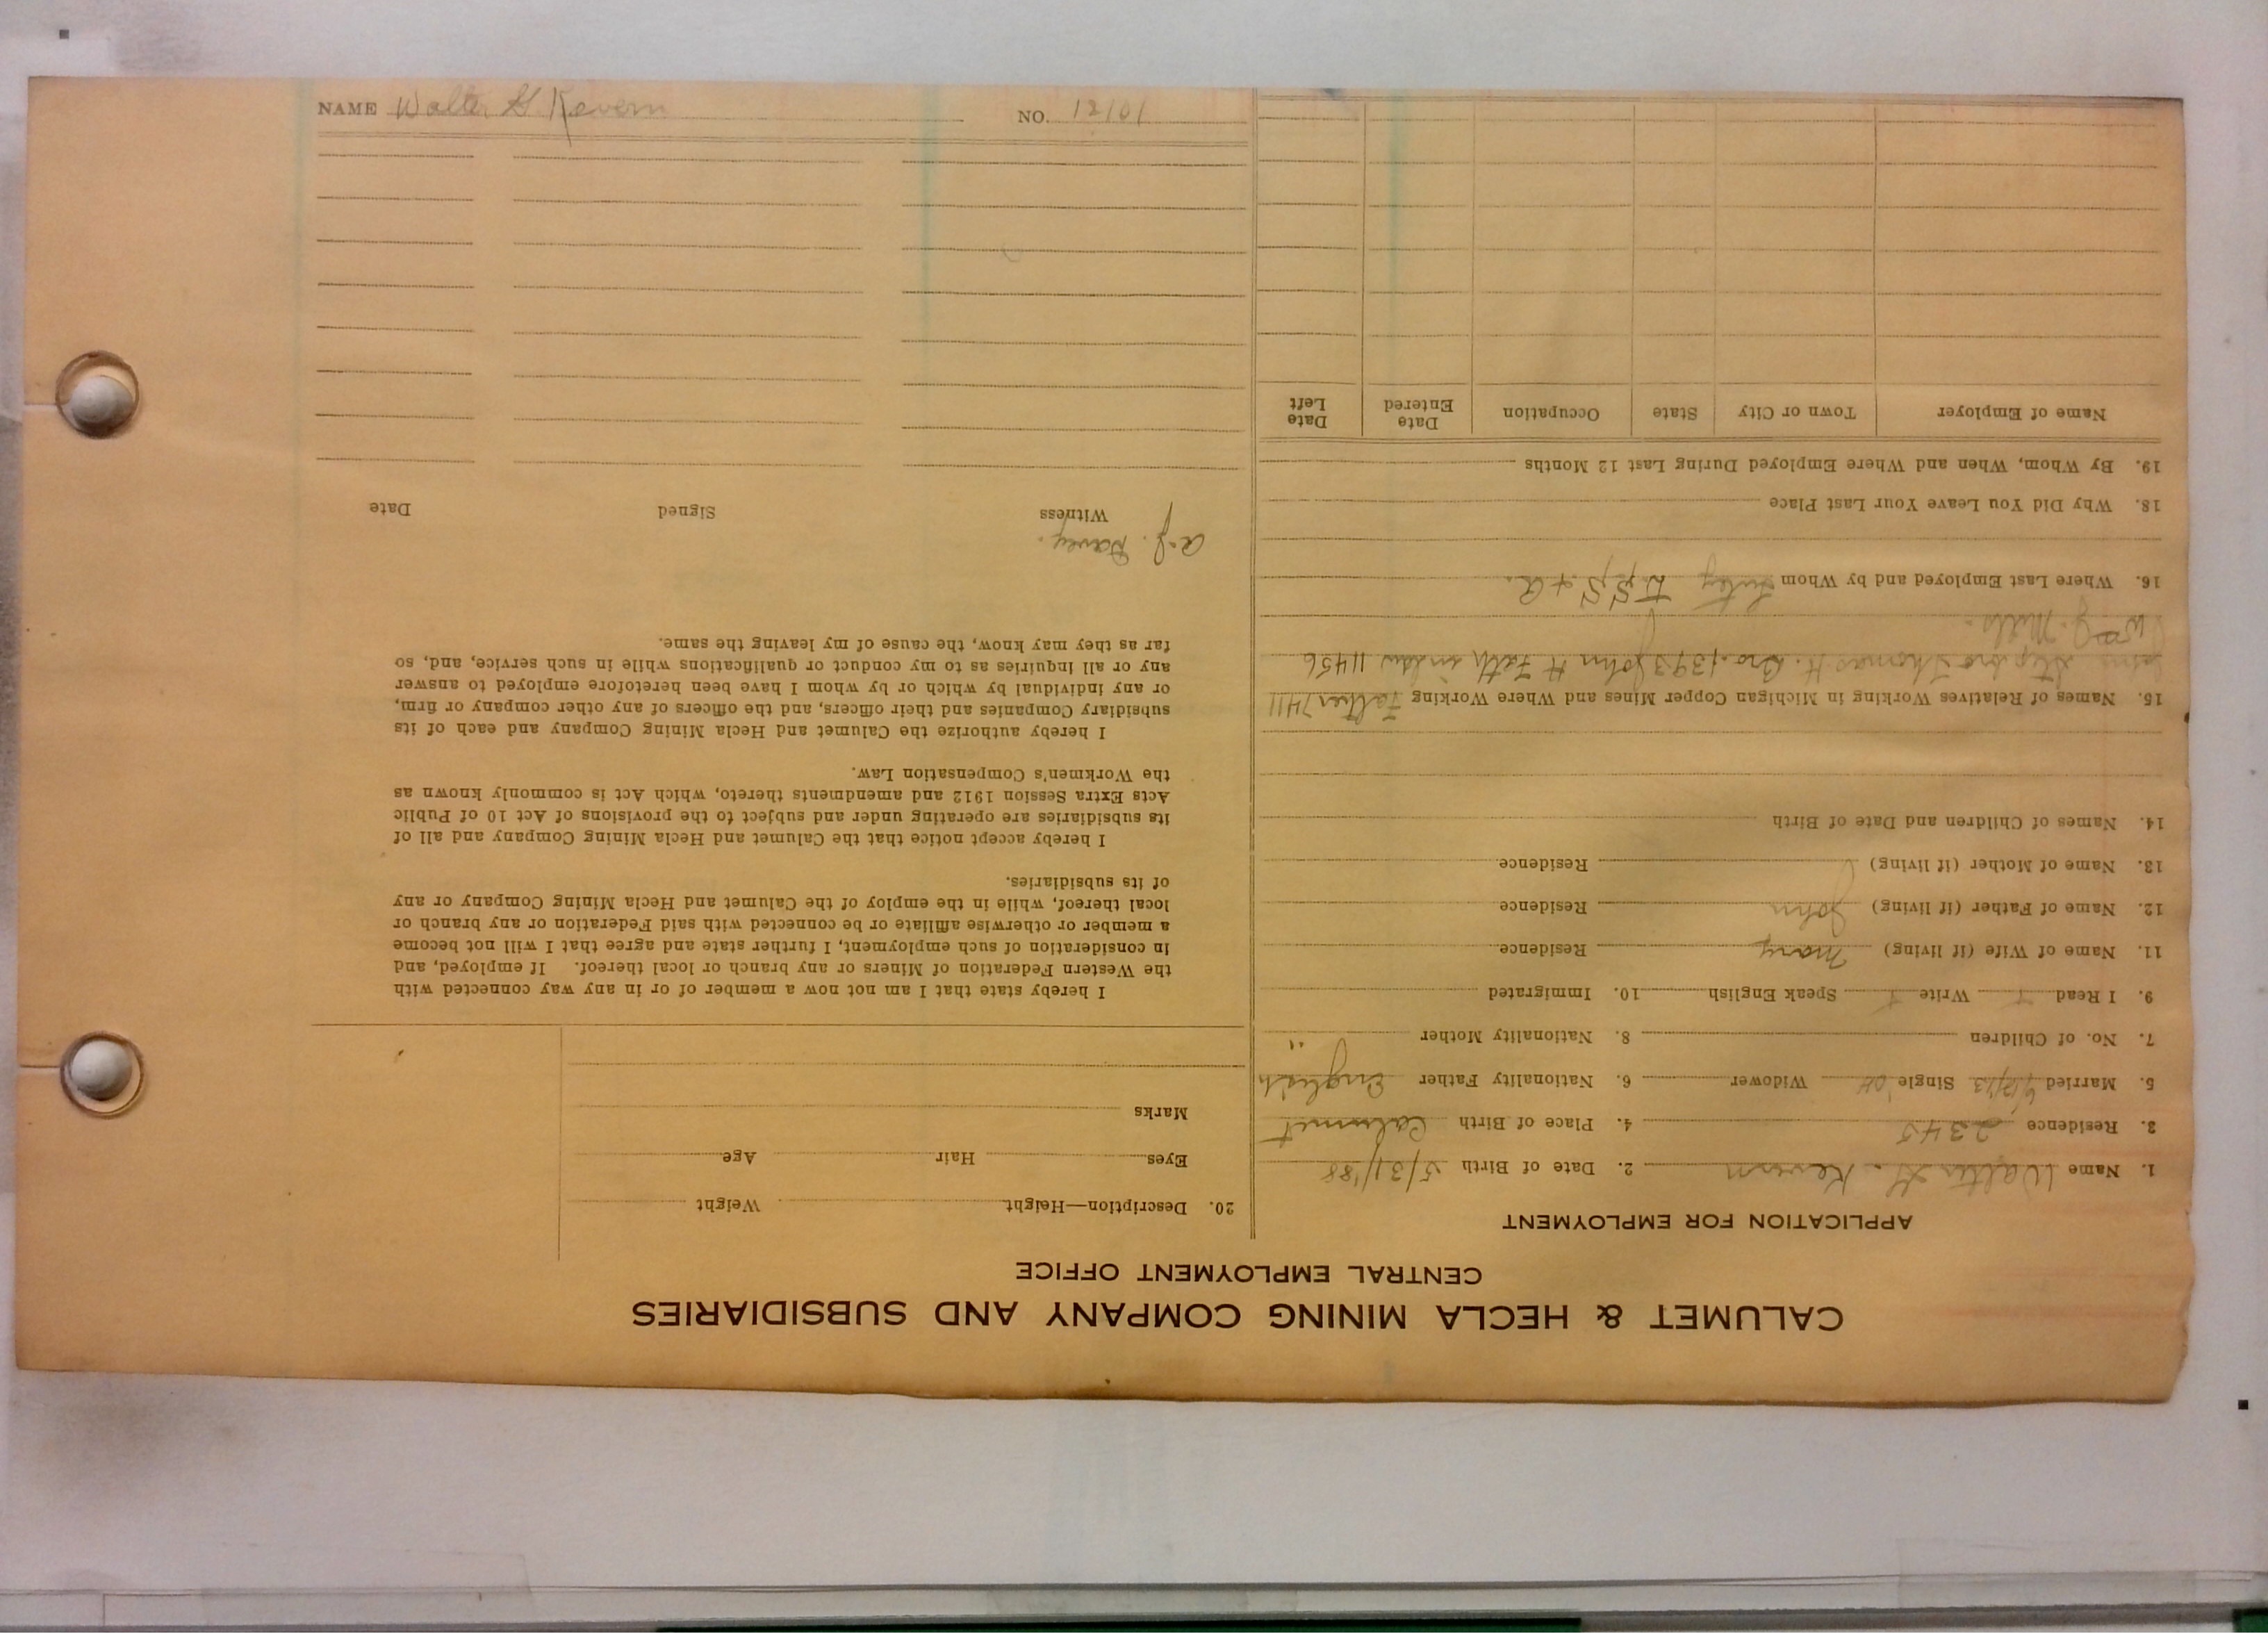 CALUMET & HECLA MINING COMPANY AND SUBSIDIARIES
CENTRAL EMPLOYMENT OFFICE
APPLICATION FOR EMPLOYMENT
1. Name Walter H. Kevern 2. Date of Birth 5/31/'88
3. Residence 2345 4. Place of Birth Calumet
5. Married Single Widower 6. Nationality Father English
7. No. of Children 8. Nationality Mother "
9. I Read Write Speak English 10. Immigrated
11. Name of Wife (if living) Mary Residence
12. Name of Father (if living) John Residence
13. Name of Mother (if living) Residence
14. Names of Children and Date of Birth
15. Names of Relatives Working in Michigan Copper Mines and Where Working Father 7411
Step bro Thomas H. Bro. 1393 John H Fath in law 11456
Wm J. Mills.
16. Where Last Employed and by Whom
18. Why Did You Leave Your Last Place
19. By Whom, When and Where Employed During Last 12 Months
Name of Employer Town or City State Occupation Date Entered Date Left
20. Description—Height Weight
Eyes Hair Age
Marks
I hereby state that I am not now a member of or in any way connected with
the Western Federation of Miners or any branch or local thereof. If employed, and
in consideration of such employment, I further state and agree that I will not become
a member or otherwise affiliate or be connected with said Federation or any branch or
local thereof, while in the employ of the Calumet and Hecla Mining Company or any
of its subsidiaries.
I hereby accept notice that the Calumet and Hecla Mining Company and all of
its subsidiaries are operating under and subject to the provisions of Act 10 of Public
Acts Extra Session 1912 and amendments thereto, which Act is commonly known as
the Workmen's Compensation Law.
I hereby authorize the Calumet and Hecla Mining Company and each of its
subsidiary Companies and their officers, and the officers of any other company or firm,
or any individual by which or by whom I have been heretofore employed to answer
any or all inquiries as to my conduct or qualifications while in such service, and, so
far as they may know, the cause of my leaving the same.
A. J. Davey.
Witness Signed Date
NAME Walter H. Kevern NO. 12101